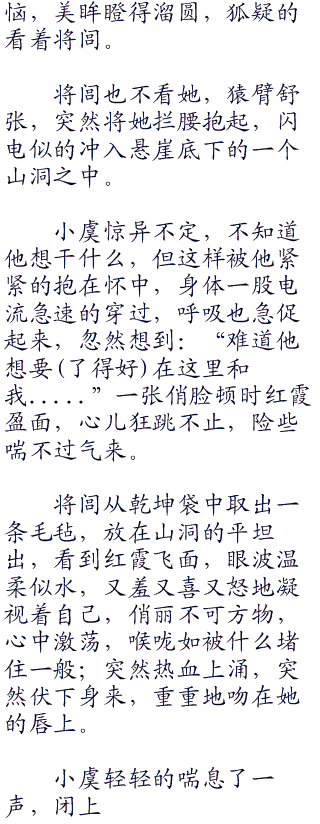 恼，美眸瞪得溜圆，狐疑的
看着将闾。
将闾也不看她，猿臂舒
张，突然将她拦腰抱起，闪
电似的冲入悬崖底下的一个
山洞之中。
小虞惊异不定，不知道
他想干什么，但这样被他紧
紧的抱在怀中，身体一股电
流急速的穿过，呼吸也急促
起来，忽然想到：“难道他
想要(了得好)在这里和
我.....”一张俏脸顿时红霞
盈面，心儿狂跳不止，险些
喘不过气来。
将闾从乾坤袋中取出一
条毛毡，放在山洞的平坦
出，看到红霞飞面，眼波温
柔似水，又羞又喜又怒地凝
视着自己，俏丽不可方物，
心中激荡，喉咙如被什么堵
住一般；突然热血上涌，突
然伏下身来，重重地吻在她
的唇上。
小虞轻轻的喘息了一
声，闭上